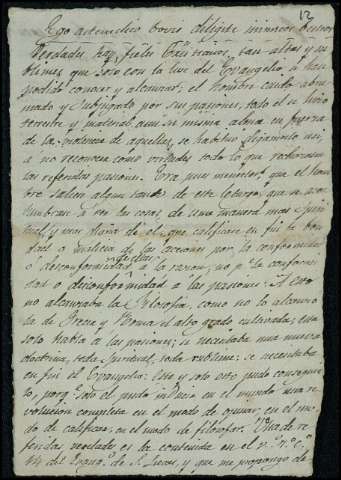 13
Ego autem dico vobis diligite inimicos vestros
Verdades hay, fieles Cristianos, tan altas y su
blimes, que solo con la luz del Evangelio se han
podido conocer y alcanzar; el hombre caido abru
mado y subyugado por sus pasiones, todo el se hizo
terrestre y material aun su misma alma en fuerza
de la violencia de aquellas, se habituó
a no reconocer como verdades todo lo que
las referidas pasiones. Era pues menester, que el hom
bre saliese algun tanto de este letargo, que se acos
tumbrase a ver las cosas, de una manera mas spiri
tual y mas clara de el, que calificase en fin la bon
dad o malicia de las acciones por la conformidad
o desconformidad de ellas a la razon, no pr la conformi
dad o desconformidad a las pasiones: A esto
no alcanzaba la Filosofia, como no lo alcanzó
la de Grecia y Roma el alto grado cultivada; esta
solo habla a las pasiones; se necesitaba una nueva
doctrina, toda spiritual, toda sublime: se necesitaba
en fin el Evangelio: Este y solo este pudo conseguir
lo, porqe solo el pudo inducir en el mundo una re
volucion completa en el modo de opinar, en el mo
do de calificar, en el modo de filosofar. Una de re
feridas verdades es la contenida en el
del de S. Lucas, y que me propongo de